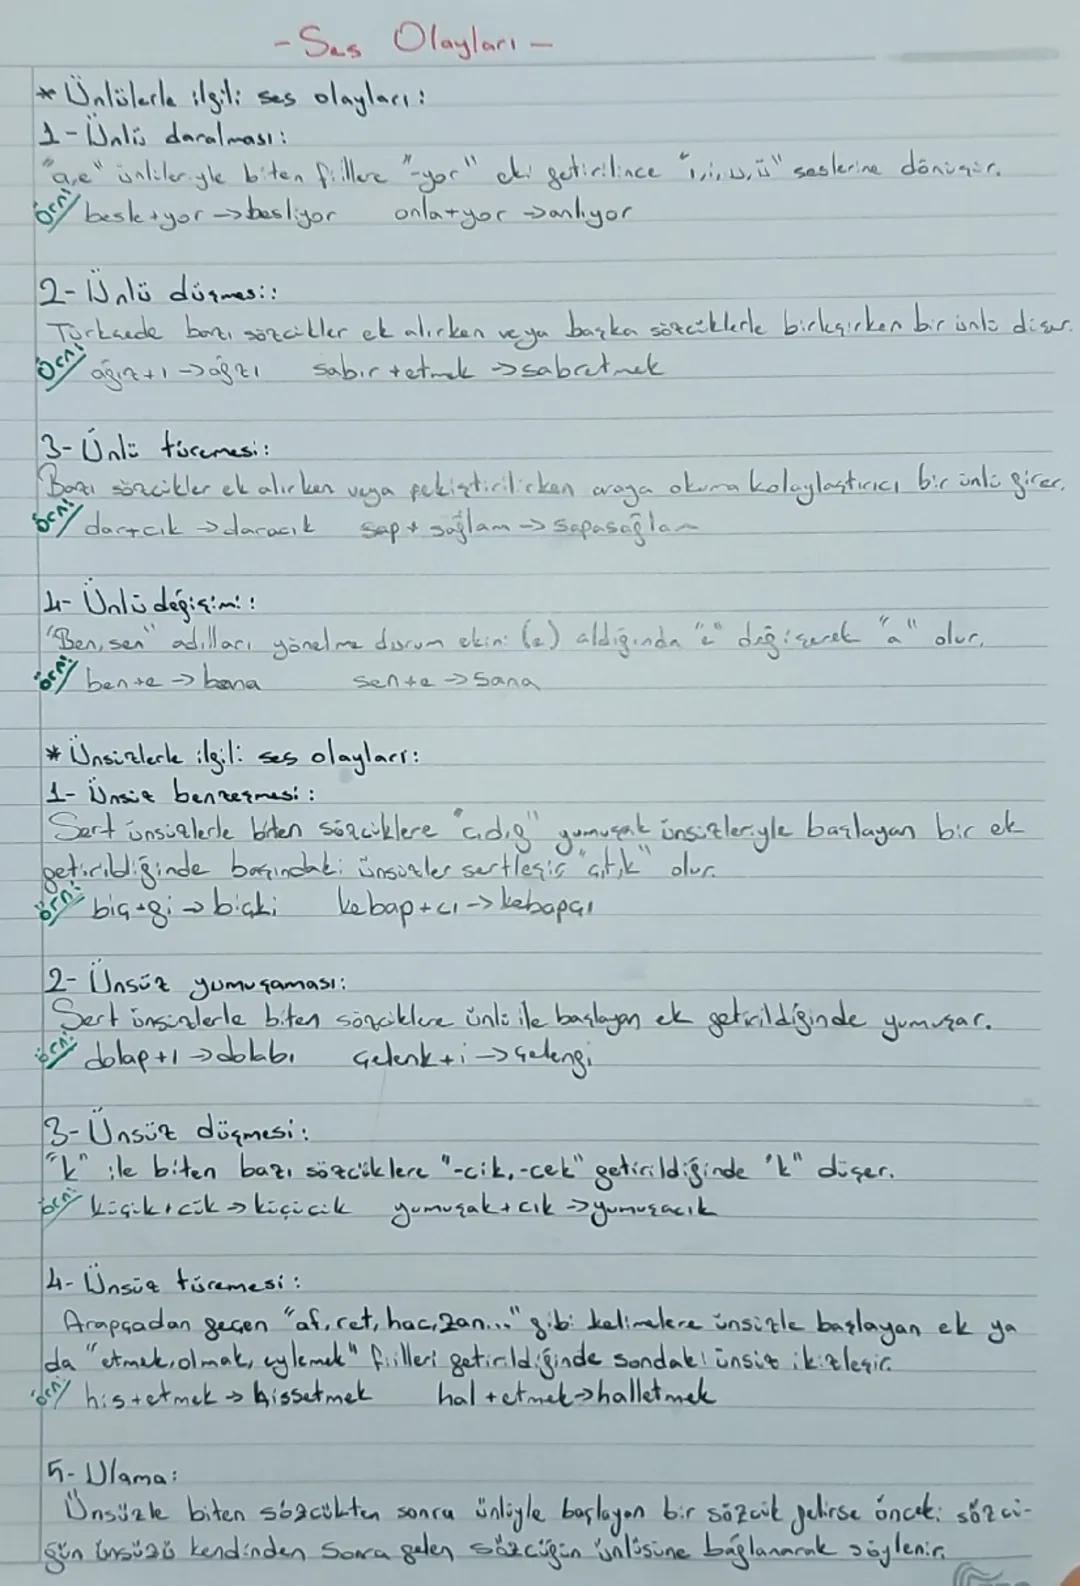 - Ses Olayları -
* Ünlülerle ilgili ses olayları:
1- Ünlü daralması:
"a,e" ünlüleriyle biten fiillere "-yor" eki getirilince "ı,i,u,ü" seslerine dönüşür.
örn: besle+yor → besliyor anla+yor → anlıyor
2- Ünlü düşmesi:
Türkçede bazı sözcükler ek alırken veya başka sözcüklerle birleşirken bir ünlü düşer.
Örn: ağız+ı → ağzı sabır+etmek → sabretmek
3- Ünlü türemesi:
Bazı sözcükler ek alırken veya pekiştirilirken araya okuma kolaylaştırıcı bir ünlü girer.
örn: dar+cık → daracık sap+sağlam → sapasağlam
4- Ünlü değişimi:
"Ben, sen" adılları yönelme durum ekini (e) aldığında "e" değişerek "a" olur.
örn: ben+e → bana sen+e → sana
* Ünsüzlerle ilgili ses olayları:
1- Ünsüz benzeşmesi:
Sert ünsüzlerle biten sözcüklere "c,d,g" yumuşak ünsüzleriyle başlayan bir ek
getirildiğinde başındaki ünsüzler sertleşip "ç,t,k" olur.
örn: biç+gi → biçki kebap+cı → kebapçı
2- Ünsüz yumuşaması:
Sert ünsüzlerle biten sözcüklere ünlü ile başlayan ek getirildiğinde yumuşar.
örn: dolap+ı → dolabı Çelenk+i → Çelengi
3- Ünsüz düşmesi:
"k" ile biten bazı sözcüklere "-cik, -cek" getirildiğinde "k" düşer.
örn: küçük+cük → küçücük yumuşak+cık → yumuşacık
4- Ünsüz türemesi:
Arapçadan geçen "af, ret, hac, zan..." gibi kelimelere ünsüzle başlayan ek ya
da "etmek, olmak, eylemek" fiilleri getirildiğinde sondaki ünsüz ikizleşir.
örn: his+etmek → hissetmek hal+etmek → halletmek
5- Ulama:
Ünsüzle biten sözcükten sonra ünlüyle başlayan bir sözcük gelirse önceki sözcü-
ğün ünsüzü kendinden sonra gelen sözcüğün ünlüsüne bağlanarak söylenir.